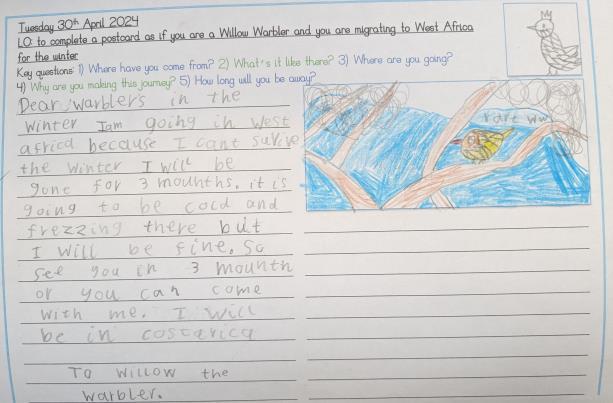 Tuesday 30th April 2024
LO: to complete a postcard as if you are a Willow Warbler and you are migrating to West Africa
for the winter
Key questions: 1) Where have you come from? 2) What's it like there? 3) Where are you going?
4) Why are you making this journey? 5) How long will you be away?
Dear warbler's in the
winter Iam going in west
africa because I cant survive
the winter I will be
gone for 3 mounths. it is
going to be cold and
frezzing there but
I will be fine. so
see you in 3 mounth
or you can come
with me. I will
be in costarica
To willow the
warbler.
rare ww